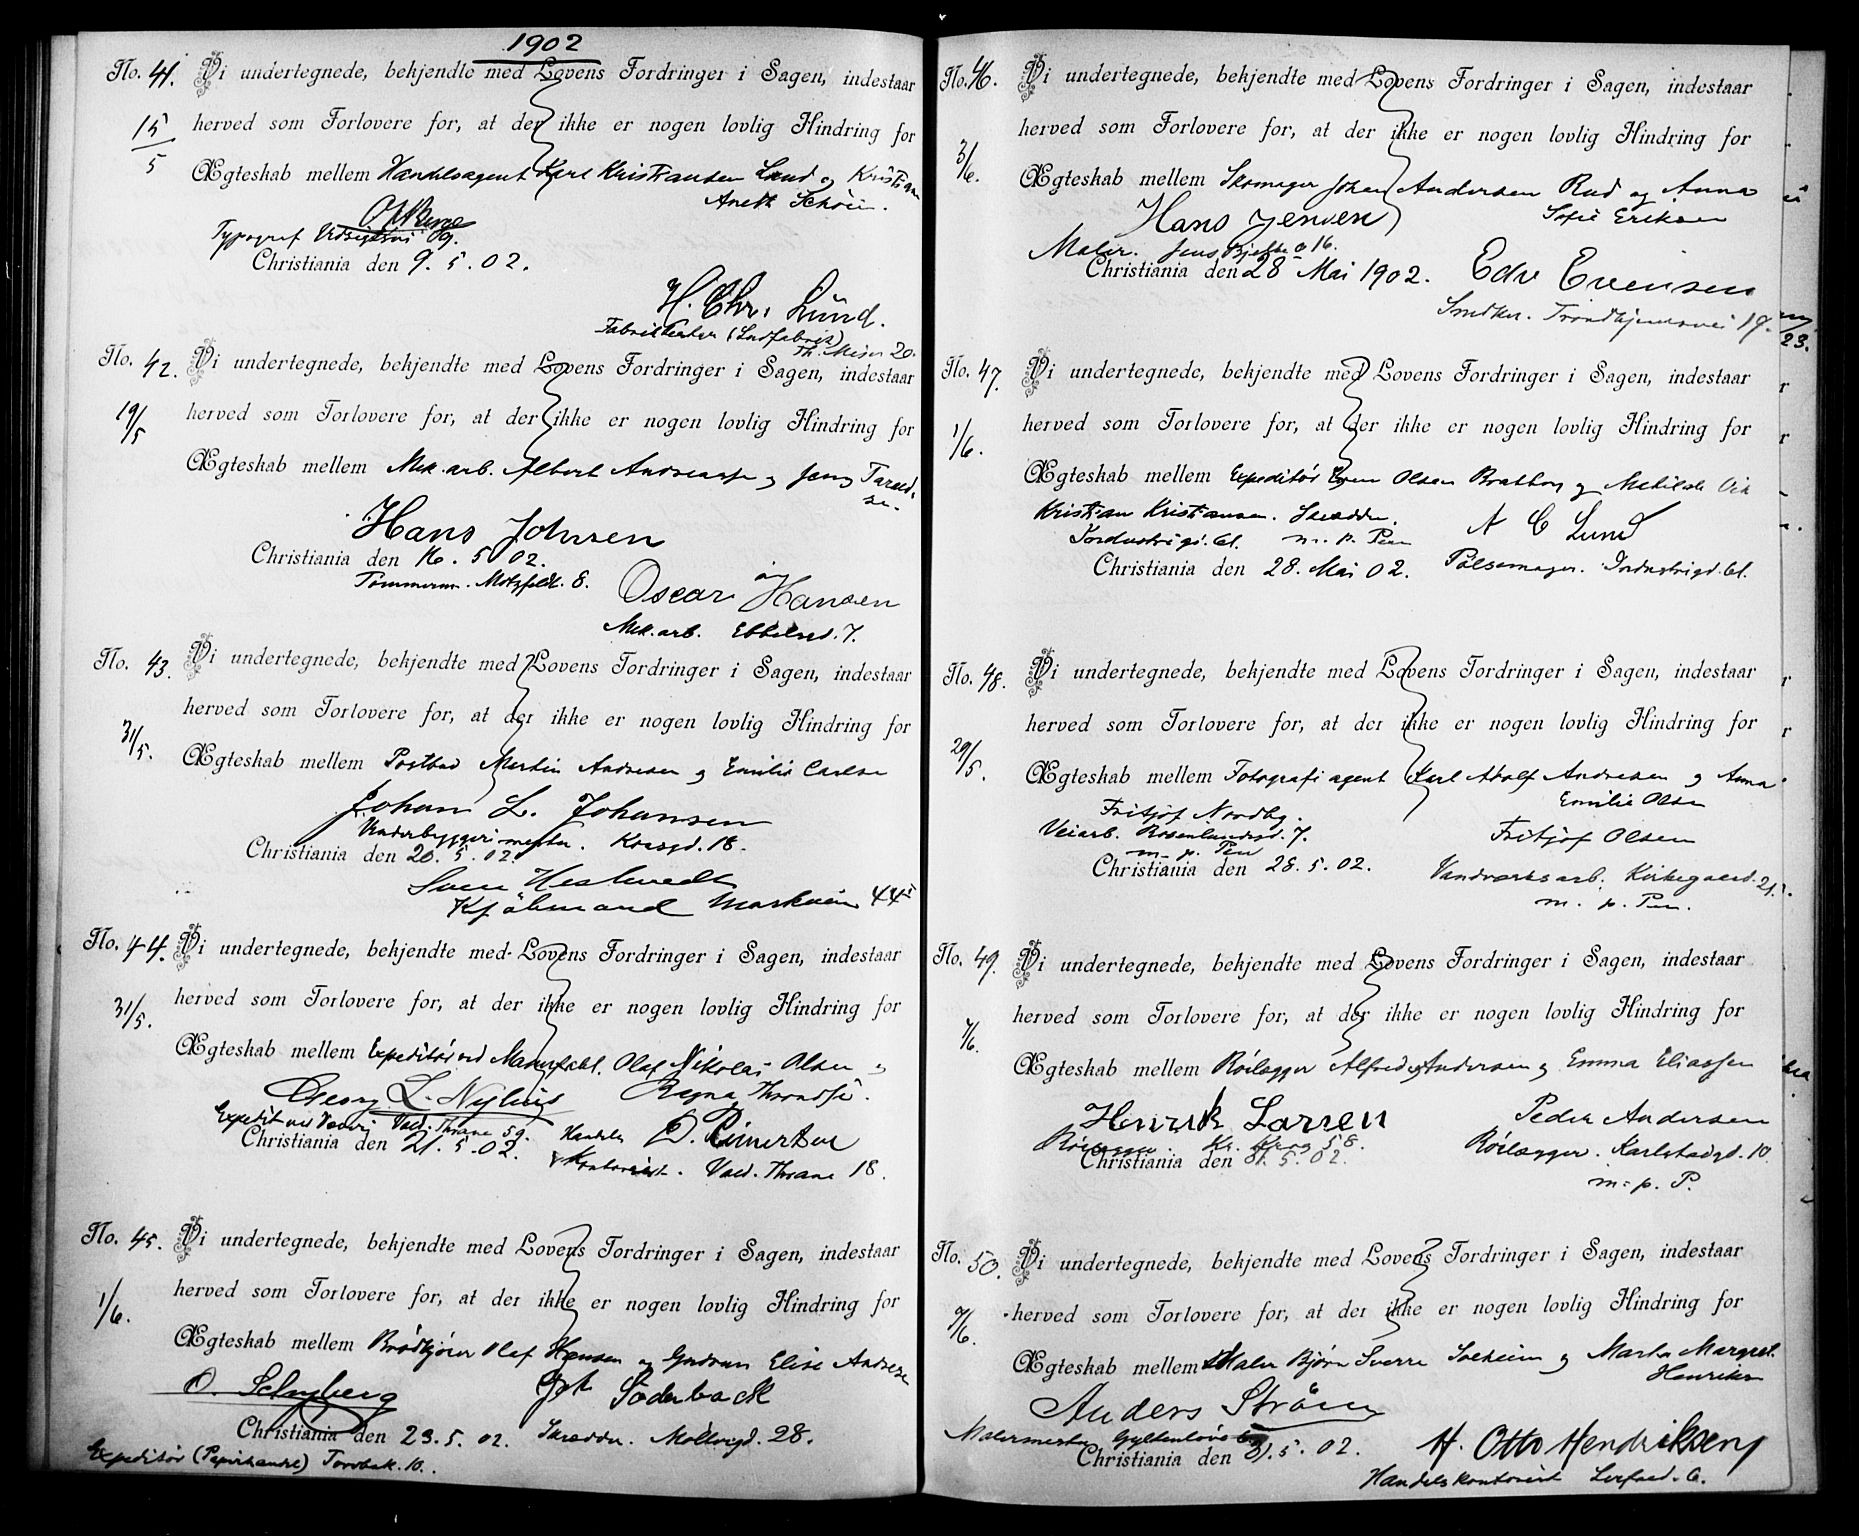 1902
No. 41. Vi undertegnede, bekjendte med Lovens Fordringer i Sagen, indestaar
15/5 herved som Forlovere for, at der ikke er nogen lovlig Hindring for
Ægteskab mellem Handelsagent Karl Kristiansen Lund og Kristian
Aneth Schøien.
Typograf
Christiania den 9. 5. 02.
H. Chr. Lund.
20.
No. 42. Vi undertegnede, bekjendte med Lovens Fordringer i Sagen, indestaar
19/5 herved som Forlovere for, at der ikke er nogen lovlig Hindring for
Ægteskab mellem Mek. arb. Albert Andreassen og Jenny
Hans Johnsen
Christiania den 16. 5 02.
Tømmerm. Motzfeldt. 8.
Oscar Hansen
Mek. arb. Ebbelsed. 7.
No. 43. Vi undertegnede, bekjendte med Lovens Fordringer i Sagen, indestaar
31/5. herved som Forlovere for, at der ikke er nogen lovlig Hindring for
Ægteskab mellem Postbud Martin Andresen og Emilie Carlsen
Johan L. Johansen
Christiania den 20. 5. 02.
Kjøbmand Markveien 44
No. 44. Vi undertegnede, bekjendte med Lovens Fordringer i Sagen, indestaar
31/5. herved som Forlovere for, at der ikke er nogen lovlig Hindring for
Ægteskab mellem Expeditør ved Manufakt. Olaf Nikolai Olsen og
Georg L. Nylius Ragna
Vald. Thrane 59.
Christiania den 21. 5. 02.
Kontorist. Vald. Thrane 18.
No. 45. Vi undertegnede, bekjendte med Lovens Fordringer i Sagen, indestaar
1/6. herved som Forlovere for, at der ikke er nogen lovlig Hindring for
Ægteskab mellem Brødkjører Olaf Hansen og Gudrun Elise Andrese
O. Schyberg Söderback
Christiania den 23. 5. 02. Skrædder. Møllergd. 28.
Expeditør (Papirhandel) Torvbak. 10.
No. 46. Vi undertegnede, bekjendte med Lovens Fordringer i Sagen, indestaar
3/6. herved som Forlovere for, at der ikke er nogen lovlig Hindring for
Ægteskab mellem Skomager Johan Andersen Rud og Anna
Hans Jensen Sofie Eriksen
Maler. Jens Bjelke g 16.
Christiania den 28 Mai 1902. Edv Evensen
Snedker. Trondhjemsvei 19.
No. 47. Vi undertegnede, bekjendte med Lovens Fordringer i Sagen, indestaar
1/6. herved som Forlovere for, at der ikke er nogen lovlig Hindring for
Ægteskab mellem Expeditør Even Olsen Bratberg og Mathilde
Kristian Kristiansen. Skrædder. A C Lund
Industrigd. 61. m. p. Pen
Christiania den 28. Mai 02. Pølsemager. Industrigd. 61.
No. 48. Vi undertegnede, bekjendte med Lovens Fordringer i Sagen, indestaar
29/5. herved som Forlovere for, at der ikke er nogen lovlig Hindring for
Ægteskab mellem Fotografi agent Karl Adolf Andresen og Anna
Emilie Olsen
Fritjof Nordby.
Veiarb. Rosenlundsgd. 7. Fritjof Olsen
m. p. Pen
Christiania den 28. 5. 02. Vandværksarb. Kirkegaard. 21.
m. p. Pen.
No. 49. Vi undertegnede, bekjendte med Lovens Fordringer i Sagen, indestaar
7/6. herved som Forlovere for, at der ikke er nogen lovlig Hindring for
Ægteskab mellem Rørlægger Alfred Andersen og Emma Eliassen
Henrik Larsen Peder Andersen
Rørlægger Kr. Krog 58. Rørlægger. Karlstadgd. 10.
Christiania den 31. 5. 02.
m. p. P.
No. 50. Vi undertegnede, bekjendte med Lovens Fordringer i Sagen, indestaar
7/6. herved som Forlovere for, at der ikke er nogen lovlig Hindring for
Ægteskab mellem Maler Bjørn Sverre Solheim og Marta Margret
Henriksen
Anders Strøm
Malermester Gyldenløves
Christiania den 31. 5. 02. H. Otto Hendriksen
Handelskontorist 6.